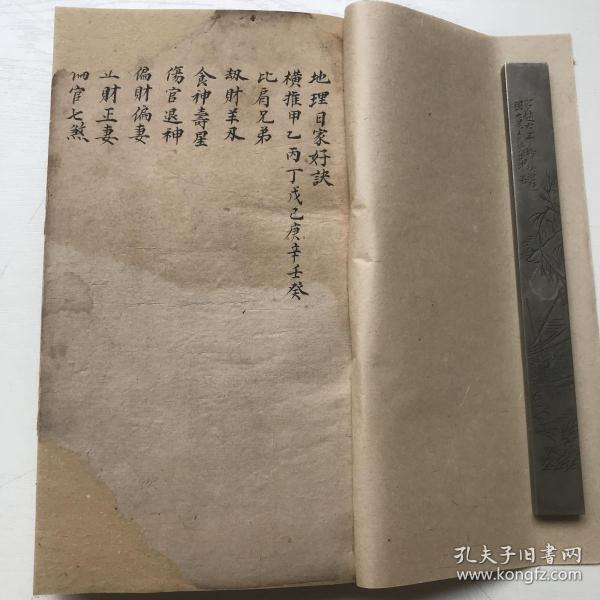 地理日家好訣
橫推甲乙丙丁戊己庚辛壬癸
比肩兄弟
刼財羊刃
食神壽星
傷官退神
偏財偏妻
正財正妻
官七煞
孔夫子旧书网
www.kongfz.com